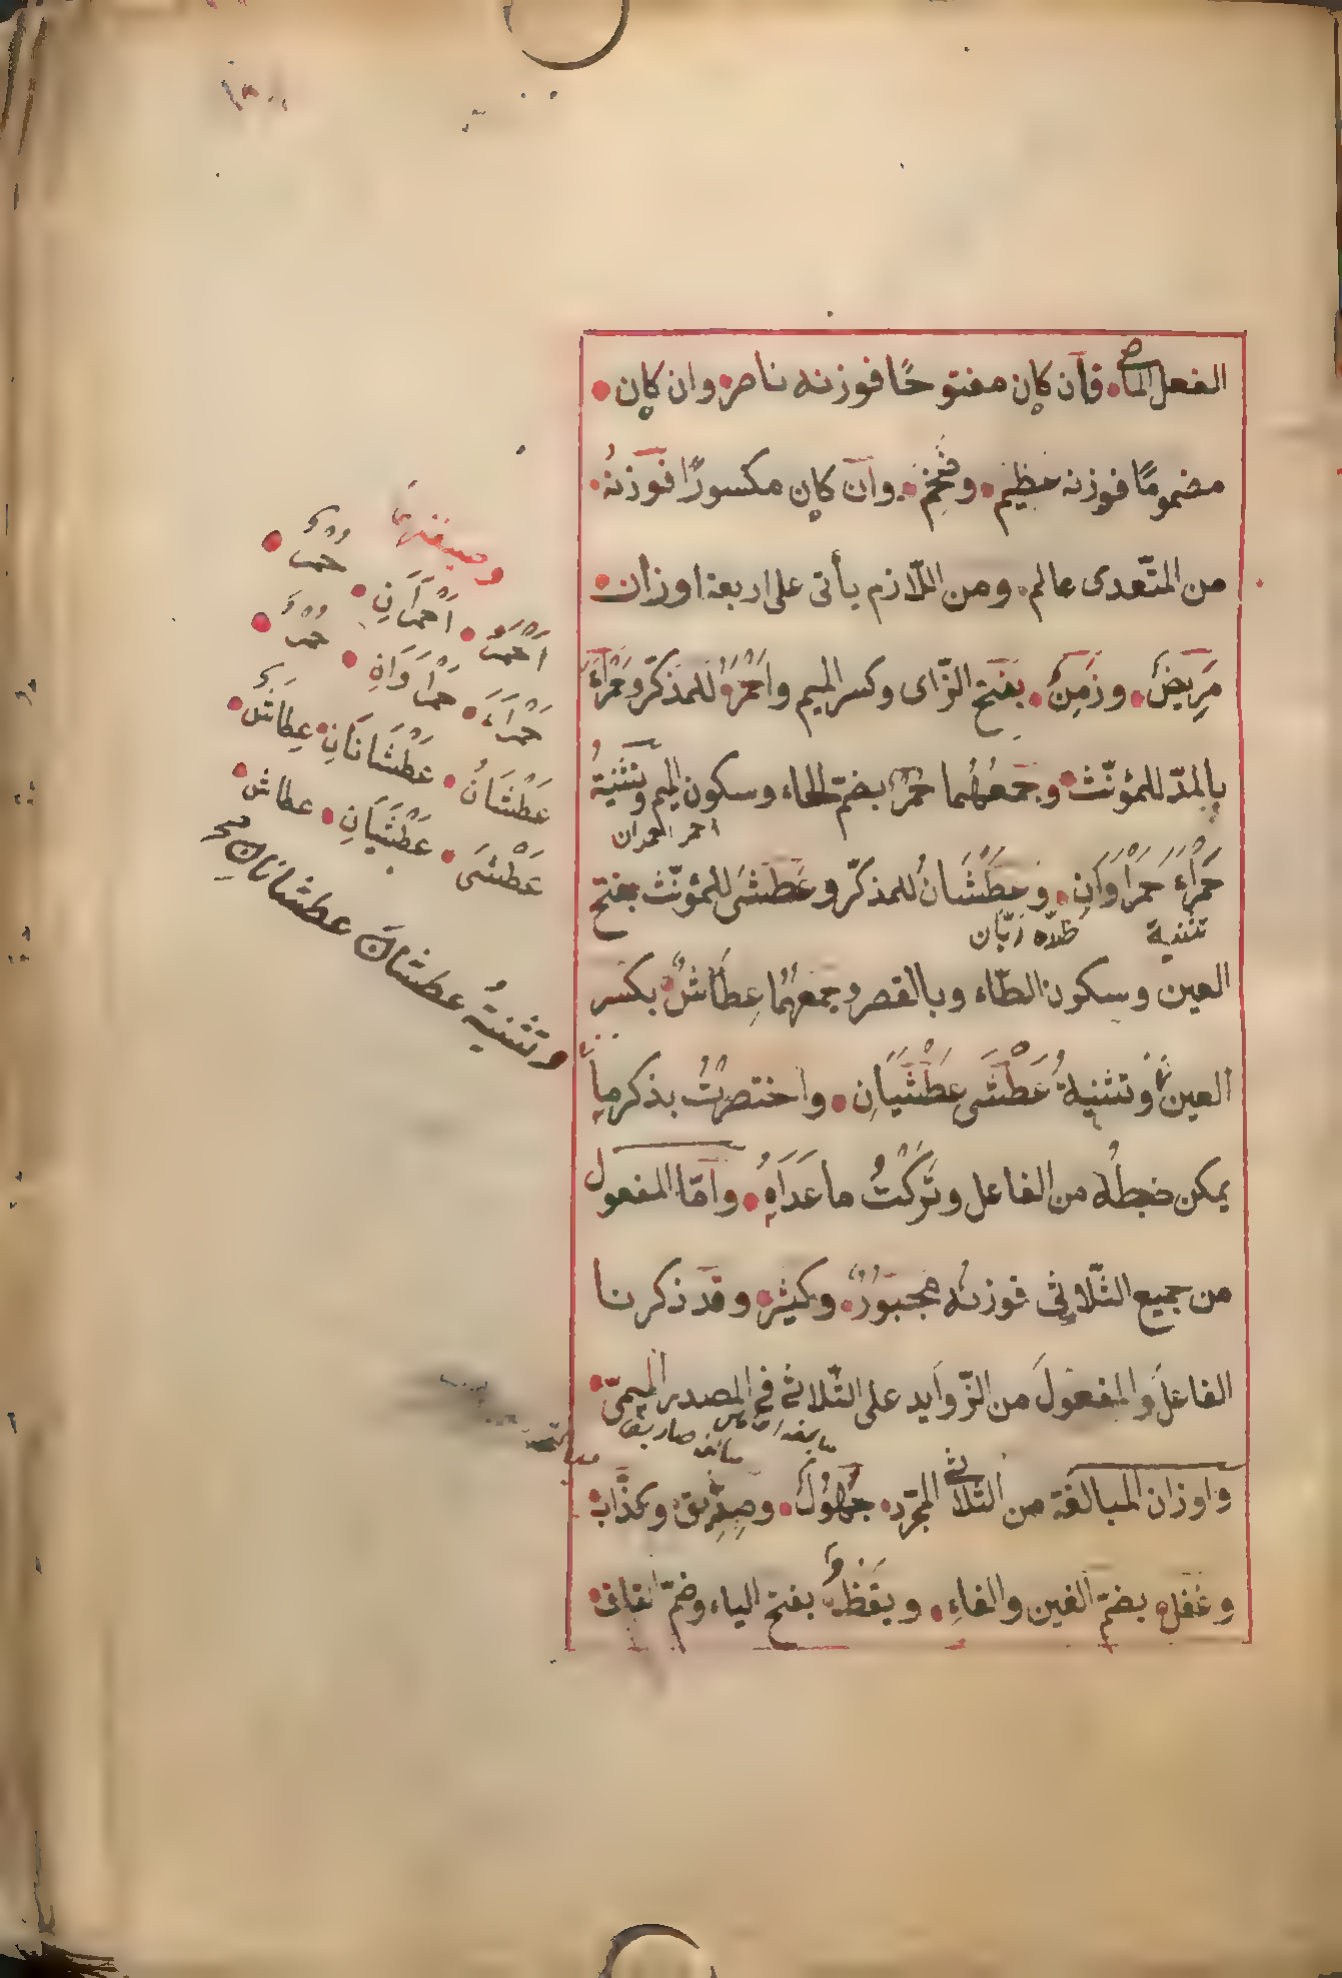 الفعل الماضى فان كان مفتوحًا فوزنه ناصر وان كان
مضمومًا فوزنه عظيم وفخم وان كان مكسورًا فوزنُه
من المتّعدى عالم ومن اللّازم يأتى على اربعة اوزان
مَرِيضٌ وزَمِنٌ بفتح الزّاى وكسر الميم واَحْمَرُ للمذكّر وحَمْرَاءُ
بالمدّ للمؤنّث وجمعُهُما حُمْرٌ بضمّ الحاء وسكون الميم وتثنيةُ
احمر احمران
حَمْرَاءَ حَمْرَاوَانِ وعَطْشَانُ للمذكّر وعَطْشَى للمؤنّث بفتح
تثنية
العين وسكون الطّاء وبالقصر وجمعهُمَا عِطَاشٌ بكسر
العين وتثنيةُ عَطْشَى عَطْشَيَانِ واختصرْتُ بذكر ما
يمكن ضبطُه من الفاعل وتَرَكْتُ ما عَدَاهُ وامّا المفعول
من جميع الثّلاثى فوزنُه مجبورٌ وكثير وقد ذكرنا
الفاعلَ والمفعولَ من الزّوايد على الثّلاثى فى المصدر الميمىّ
واوزان المبالغة من الثّلاثى المجرّد جَهُولٌ وصِدِّيق وكذّاب
وغفل بضمّ الغين والفاءِ ويَقُظٌ بفتح الياء وضمّ القاف
وصيغتها
اَحْمَرُ اَحْمَرَانِ حُمْرٌ
حَمْرَاءَ حَمْرَاوَانِ حُمْرٌ
عَطْشَانُ عَطْشَانَانِ عِطَاشٌ
عَطْشَى عَطْشَيَانِ عطاش
وتثنيةُ عطشان عطشانانِ